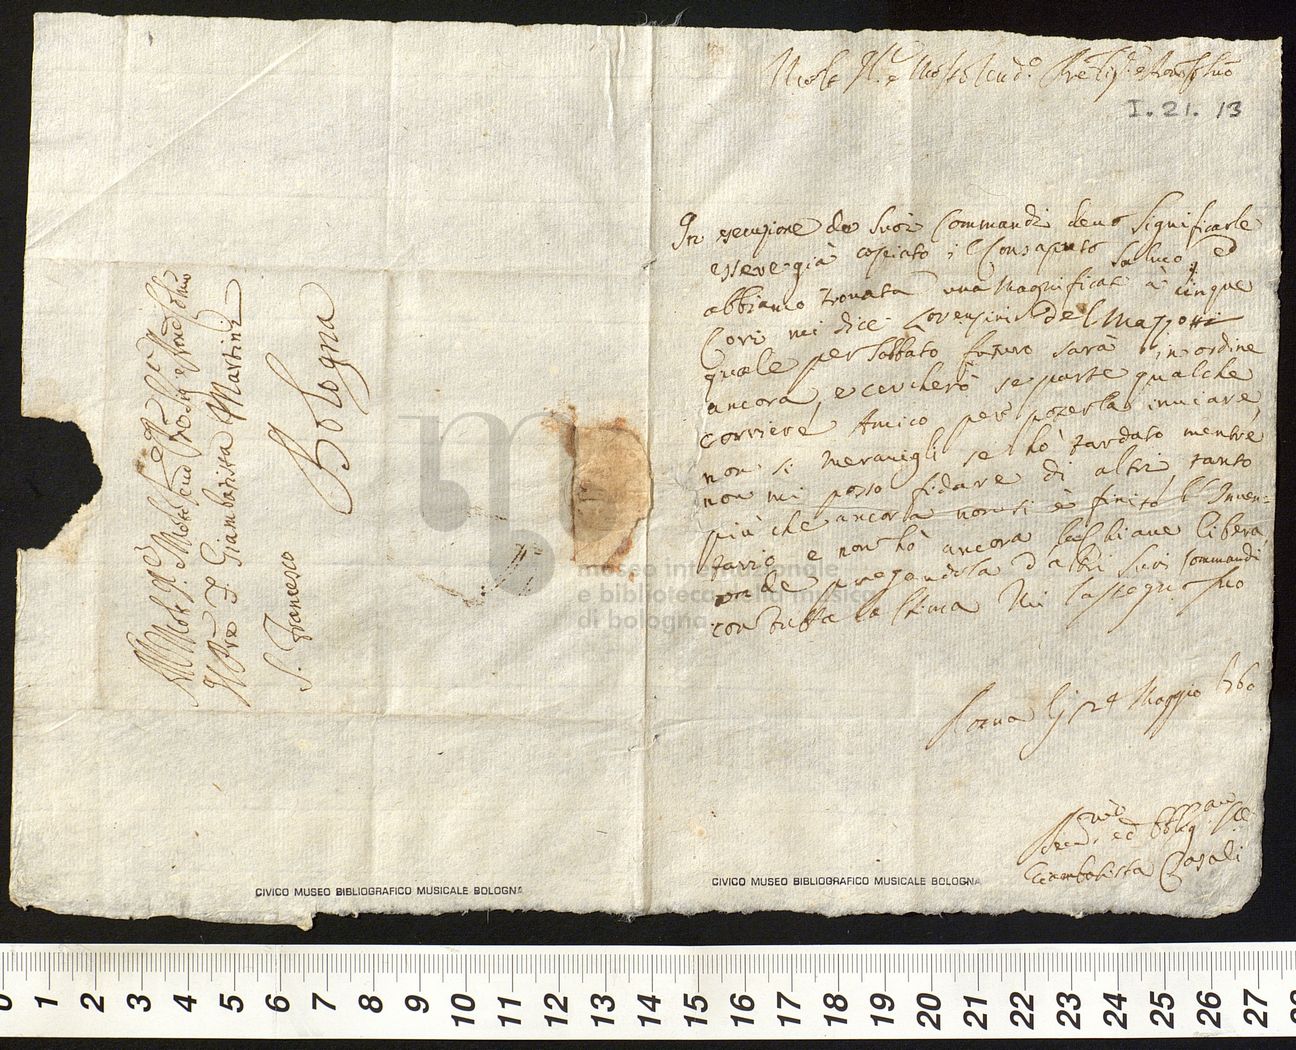 I. 21. 13
In esecuzione de suoi Commandi devo significarle
essere già copiato il Consaputo Salmo, ed
abbiamo trovata una Magnificat à cinque
Cori mi dice Lorenzini del Mazzotti
quale per Sabbato futuro sarà in ordine
ancora, e cercherò se parte qualche
corriere Amico per poterla inviare,
non si meravigli se hò tardato mentre
non mi posso fidare di altri tanto
più che ancora non si è finito l'Inven=
tario e non hò ancora la chiave libera
onde pregandola d'altri suoi commandi
con tutta la stima mi rassegno
Roma li 24 Maggio 1760
ed obblig
Giambatista Casali
Al Molto
Il Pre F. Giambatista Martini
S. Francesco
Bologna
museo internazionale
e biblioteca della musica
di bologna
CIVICO MUSEO BIBLIOGRAFICO MUSICALE BOLOGNA
CIVICO MUSEO BIBLIOGRAFICO MUSICALE BOLOGNA
0 1 2 3 4 5 6 7 8 9 10 11 12 13 14 15 16 17 18 19 20 21 22 23 24 25 26 27 28